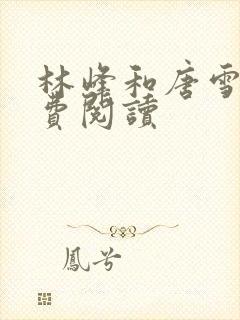 林峰和唐雪
費閱讀
鳳兮